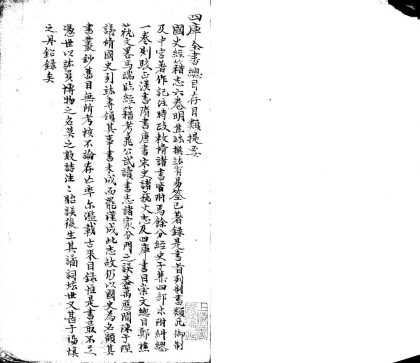 四庫全書總目存目類提要
國史經籍志六卷明焦竑撰竑有易筌已著錄是書首列制書類凡御製
及中宮著作記注時政敕修諸書皆附焉餘分經史子集四部末附糾繆
一卷則駁正漢書隋書唐書宋史諸藝文志及四庫書目崇文總目鄭樵
藝文畧馬端臨經籍考晁公武讀書志諸家分門之誤蓋萬厯間陳于陛
議修國史引竑專領其事書未成而罷僅成此志故仍以國史為名顧其
書叢鈔舊目無所考核不論存亡率爾濫載古來目錄惟是書最不足
憑世以竑負博物之名莫之敢詰
貽誤後生其譎詞炫世又甚于楊慎
之丹鉛錄矣